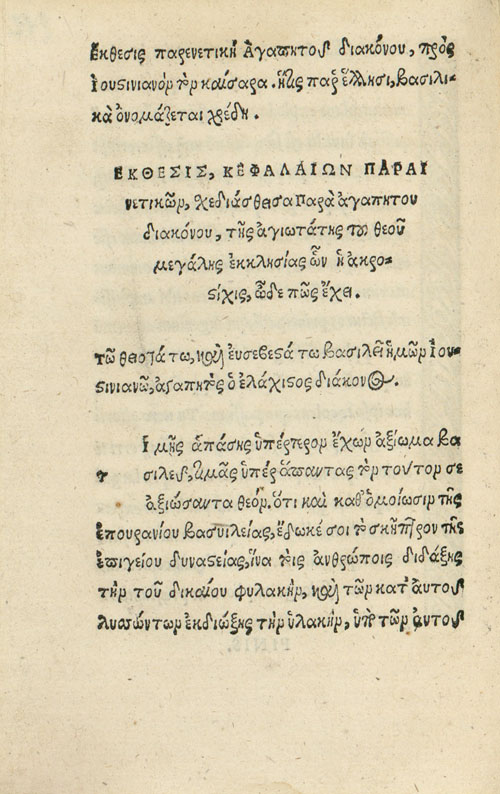 Εκθεσις παρενετικὴ Ἀγαπητοῦ διακόνου, πρὸς
Ἰουστινιανὸν τὸν καίσαρα. ἥτις παρ ἕλλησι, βασιλι-
κὰ ὀνομάζεται χέδη.
ΕΚΘΕΣΙΣ, ΚΕΦΑΛΑΙΩΝ ΠΑΡΑΙ
νετικῶν, χεδιάσθεισα παρὰ ἀγαπητου
διακόνου, τῆς ἁγιωτάτης τοῦ θεοῦ
μεγάλης ἐκκλησίας ὧν ἡ ἀκρο-
στίχις, ὧδε πῶς ἔχει.
τῶ θειοτάτω, καὶ ἐυσεβεστάτω βασιλεῖ ἡμῶν Ἰου-
στινιανῶ, ἀγαπητὸς ὁ ἐλάχιστος διάκονος.
Ι μῆς ἁπάσης ὑπέρτερον ἔχων ἀξίωμα βα
τ σιλεῦ, τιμᾶς ὑπέρ ἅπαντας τὸν τοῦτον σε
ἀξιώσαντα θεόν. ὅτι καὶ καθ' ὁμοίωσιν τῆς
ἐπουρανίου βασυιλείας, ἔδωκέ σοι τὸ σκῆπτρον τῆς
ἐπιγείου δυναστείας, ἵνα τοὶς ἀνθρώποις διδάξης
τὴν τοῦ δικαίου φυλακὴν, καὶ τῶν κατ' ἀυτοῦ
λυσσώντων ἐκδιώξης τὴν ὑλακὴν, ὑπὸ τῶν ἀυτοῦ